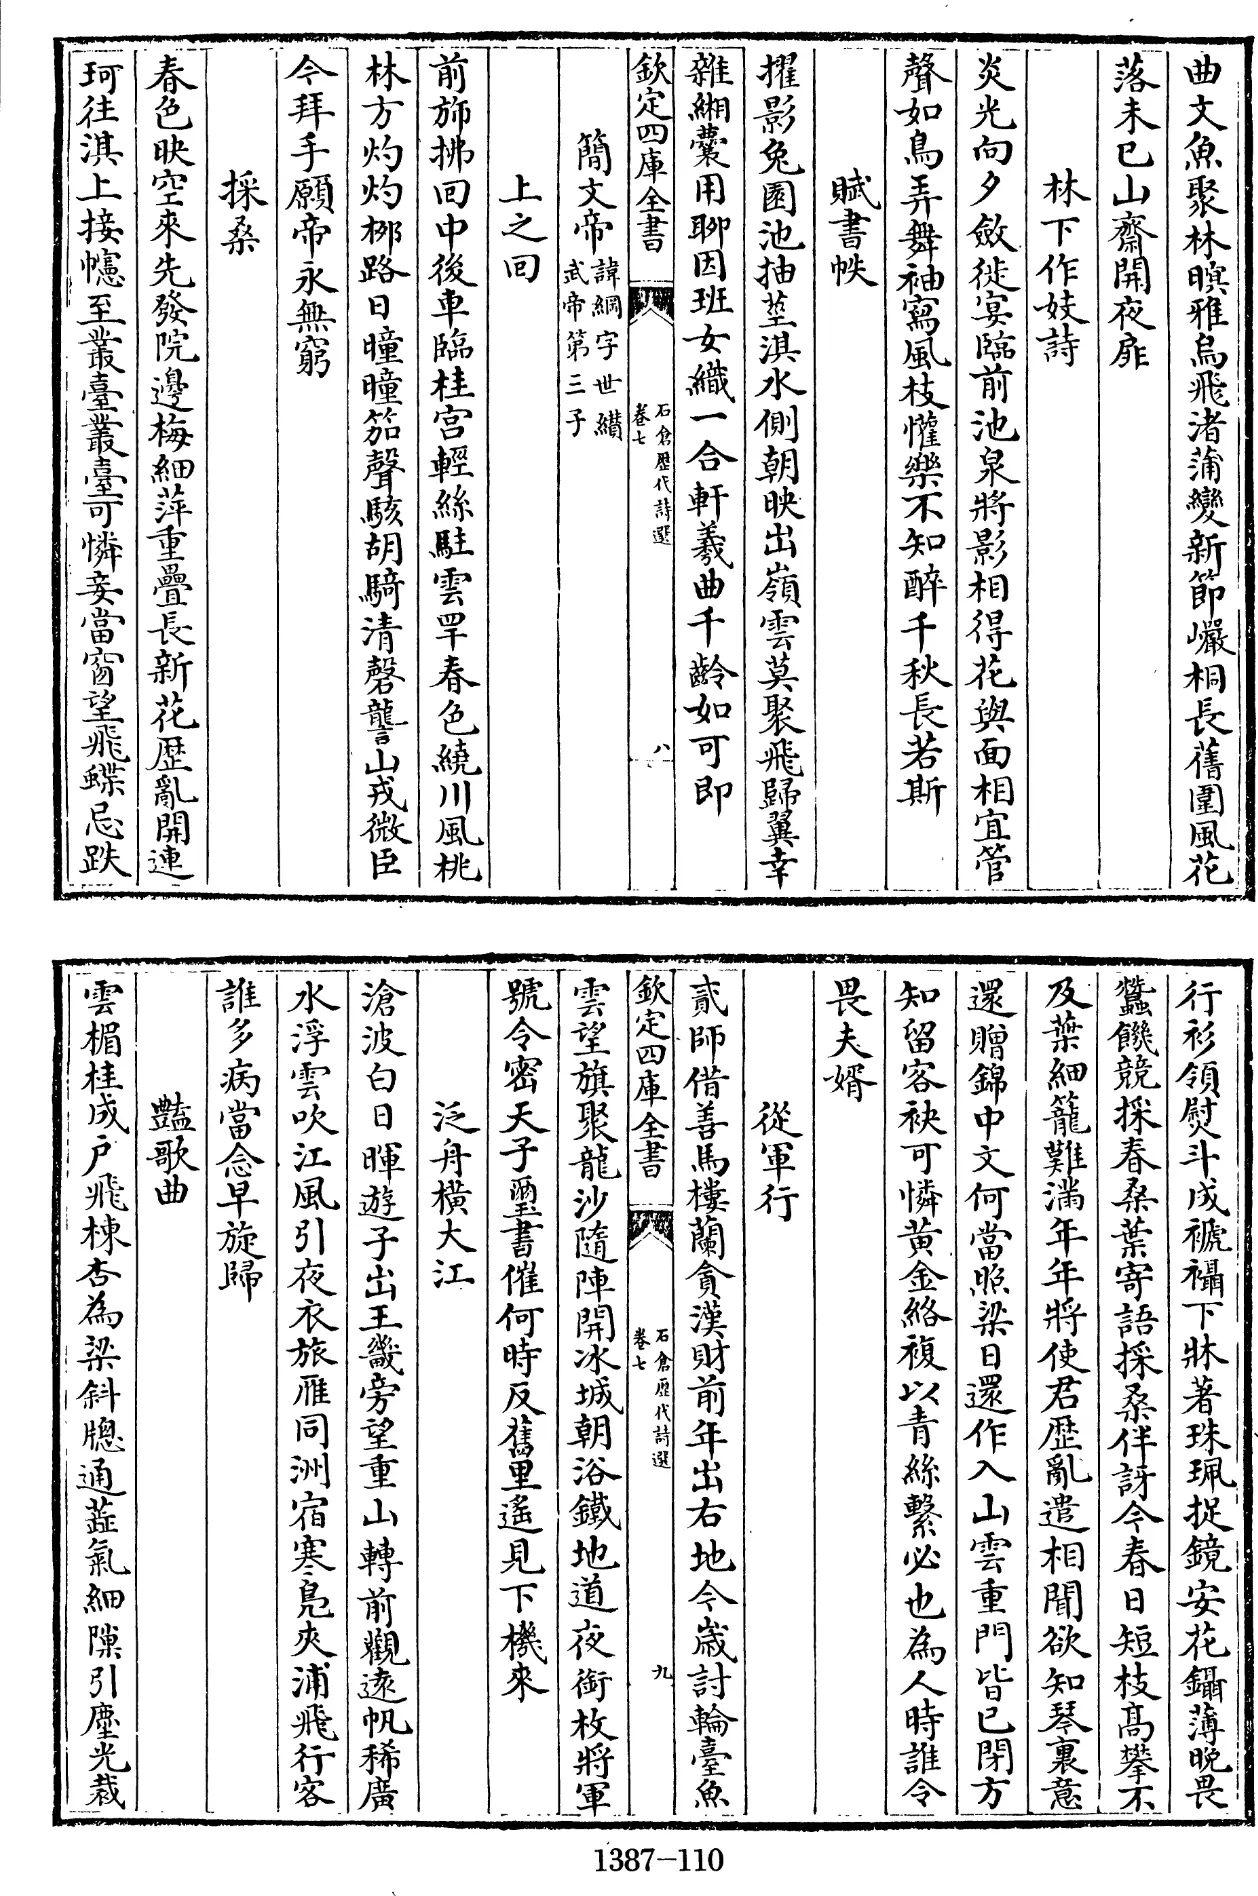 曲文魚聚林暝雅烏飛渚蒲變新節巗桐長舊圍風花
落未已山齋開夜扉
林下作妓詩
炎光向夕斂徙宴臨前池泉將影相得花與面相宜管
聲如鳥弄舞袖寫風枝懽樂不知醉千秋長若斯
賦書帙
擢影兔園池抽莖淇水側朝映出嶺雲莫聚飛歸翼幸
雜緗囊用聊因班女織一合軒羲曲千齡如可即
欽定四庫全書
石倉歷代詩選
卷七
八
簡文帝
諱綱字世纉
武帝第三子
上之回
前斾拂回中後車臨桂宫輕絲駐雲罕春色繞川風桃
林方灼灼桞路日曈曈笳聲駭胡騎清磬讋山戎微臣
今拜手願帝永無窮
採桑
春色映空來先發院邊梅細萍重疊長新花歴亂開連
珂往淇上接幰至叢臺叢臺可憐妾當窗望飛蝶忌跌
行衫領熨斗成褫襵下牀著珠珮捉鏡安花鑷薄晚畏
蠶饑競採春桑葉寄語採桑伴訝今春日短枝高攀不
及葉細籠難滿年年將使君歴亂遣相聞欲知琴裏意
還贈錦中文何當照梁日還作入山雲重門皆已閉方
知留客袂可憐黄金絡複以青絲繫必也為人時誰令
畏夫壻
從軍行
貳師借善馬樓蘭貪漢財前年出右地今嵗討輪臺魚
欽定四庫全書
石倉歷代詩選
卷七
九
雲望旗聚龍沙隨陣開冰城朝浴鐵地道夜銜枚將軍
號令密天子璽書催何時反舊里遥見下機來
泛舟横大江
滄波白日暉遊子出王畿旁望重山轉前觀逺帆稀廣
水浮雲吹江風引夜衣旅雁同洲宿寒鳬夾浦飛行客
誰多病當念早旋歸
豔歌曲
雲楣桂成户飛棟杏為梁斜牎通蘂氣細隙引塵光裁
1387-110